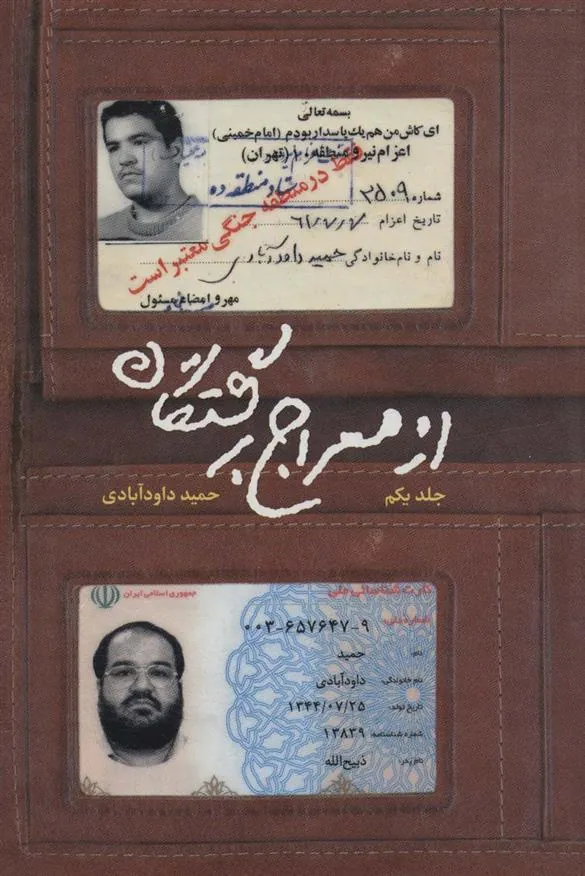 بسمه تعالی
ای کاش من هم یك پاسدار بودم (امام خمینی)
اعزام نیرو منطقه ۱۰ (تهران)
ستاد منطقه ده
فقط در منطقه جنگی معتبر است
شماره ۲۵۰۹
تاریخ اعزام
نام و نام خانوادگی حمید داودآبادی
مهر و امضاء مسئول
از معراج برگشتگان
جلد یکم
حمید داودآبادی
جمهوری اسلامی ایران
کارت شناسائی ملی
شماره ملی: ۰۰۳-۶۵۷۶۴۷-۹
نام: حمید
نام خانوادگی: داودآبادی
تاریخ تولد: ۱۳۴۴/۰۷/۲۵
شماره شناسنامه: ۱۳۸۳۹
نام پدر: ذبیح‌الله